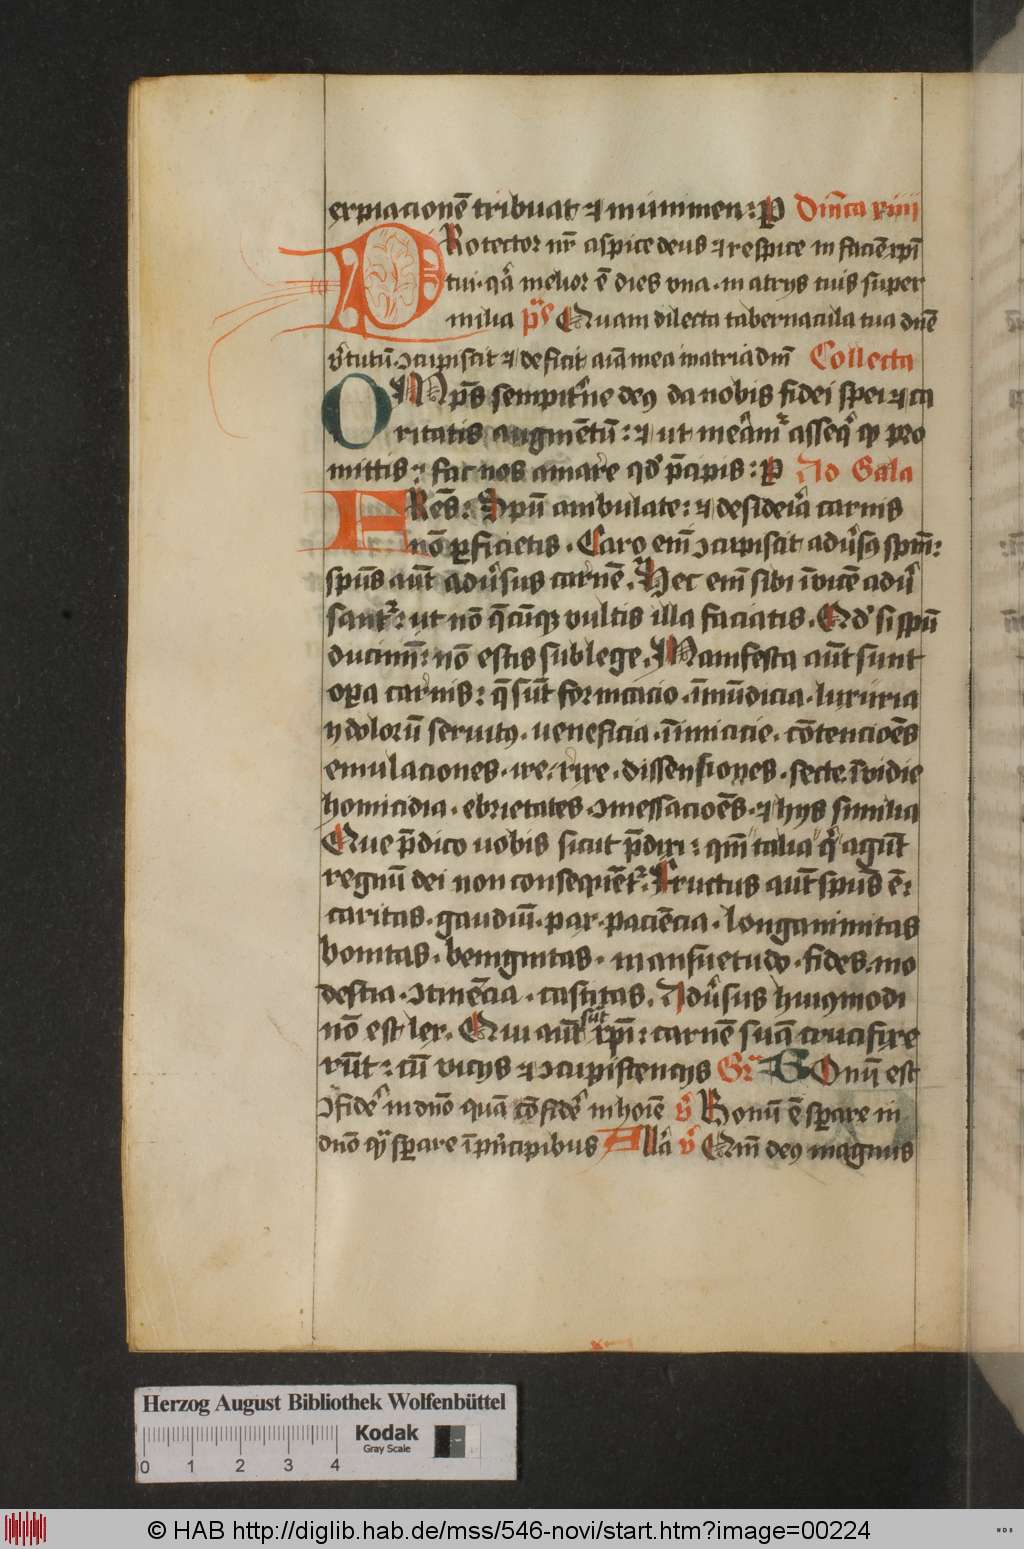 expiacionē tribuat ⁊ mūnimen: P Dn̄ica xiiii
PRotector nr̄ aspice deus ⁊ respice in faciē xp̄i
tui· qā melior ē dies vna · in atrijs tuis super
milia p̄s Quam dilecta tabernacula tua dn̄e
v̓tutum ꝯcupiscit ⁊ deficit aīa mea in atria dn̄i Collecta
OMp̄s sempit̓ne deꝰ da nobis fidei spei ⁊ ca
ritatis augmentū: ⁊ ut meam̓ asseq̓ qͥ pro
mittis: fac nos amare qd̓ p̄cipis: P Ad Gala
FRēs: Spū ambulate: ⁊ desideia carnis
nō ꝑficietis. Caro em̄ ꝯcupiscit adu̓sꝰ spm̄:
spūs aūt adu̓sus carnē. Hec em̄ sibi īvicē adu̓
sant̓: ut nō q̄cūqꝫ vultis illa faciatis. Qd̓ si spū
ducimī: nō estis sub lege. Manifesta aūt sunt
oꝑa carnis: q̄ sūt fornicacio · īmūdicia · luxuria
ydolorū seruitꝰ · ueneficia · īimicicie · cōtencioēs
emulaciones · ire · rixe · dissensiones · secte īvidie
homicidia · ebrietates ꝯmessacioēs · ⁊ hijs similia
Que p̄dico uobis sicut p̄dixi: qm̄ talia qͥ agūt
regnū dei non consequēt̓. Fructus aūt spūs ē:
caritas · gaudiū · pax · paciēcia · longanimitas
bonitas · benignitas · mansuetudo · fides · mo
destia · ꝯtinēcia · castitas. Adu̓sus huiꝰmodi
nō est lex. Qui aūt sūt xp̄i: carnē suā crucifixe
rūt: cū vicijs ⁊ ꝯcupiscencijs Gr̄ BOnū est
ꝯfide̓ in dn̄o quā cōfide̓ in hoīe v̓ Bonū ē sꝑare in
dn̄o qͣ sꝑare ī pͥncipibus Alla v̓ Qm̄ deꝰ magnus
Herzog August Bibliothek Wolfenbüttel
Kodak
Gray Scale
0 1 2 3 4
© HAB http://diglib.hab.de/mss/546-novi/start.htm?image=00224